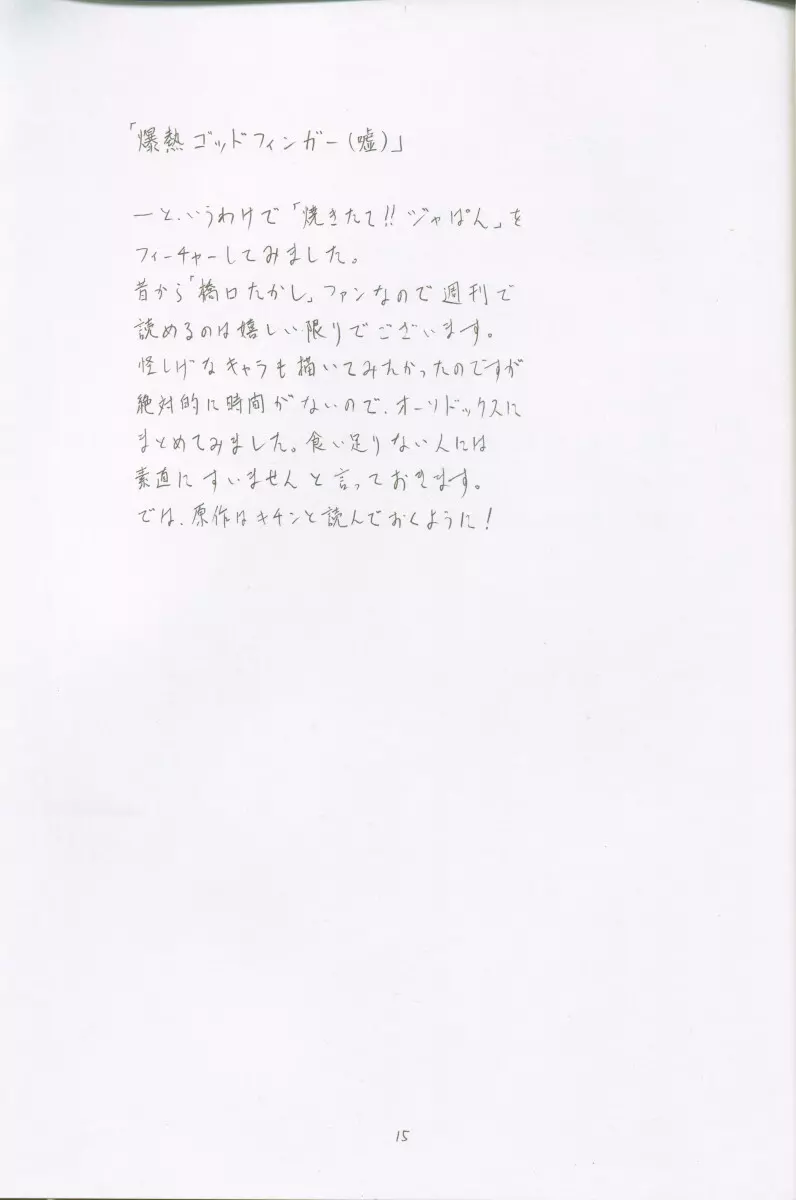 「爆熱ゴッドフィンガー(嘘)」
―と、いうわけで「焼きたて!!ジャぱん」を
フィーチャーしてみました。
昔から「橋口たかし」ファンなので週刊で
読めるのは嬉しい限りでございます。
怪しげなキャラも描いてみたかったのですが
絶対的に時間がないので、オーソドックスに
まとめてみました。食い足りない人には
素直にすいませんと言っておきます。
では、原作はキチンと読んでおくように!
15